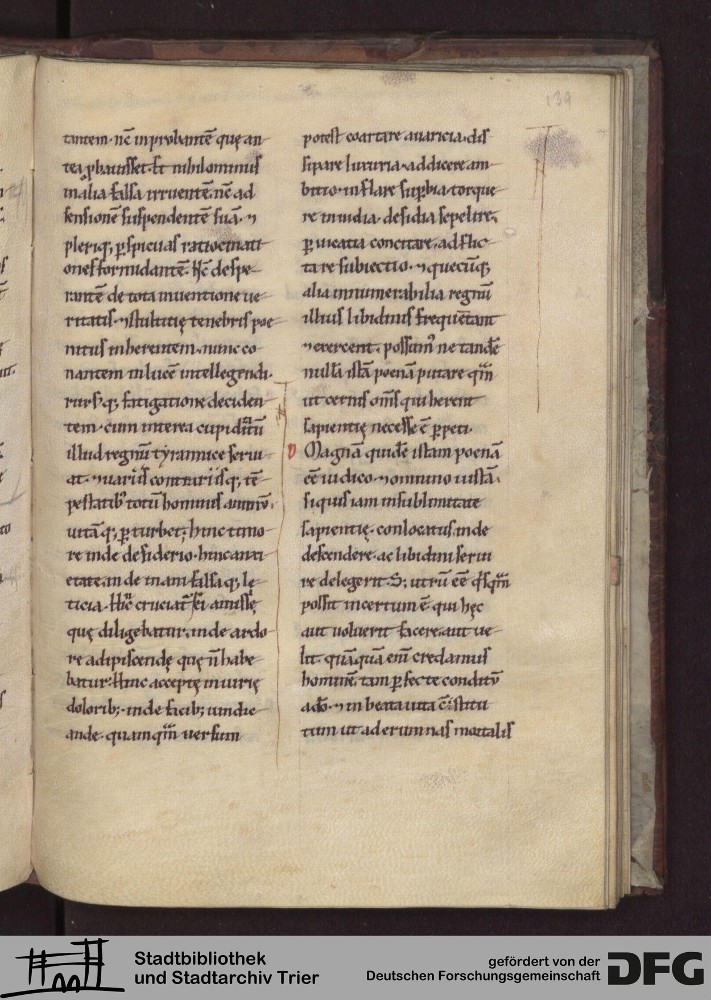 139
tantem · nc̄ inprobantē quę an
tea ꝓbauisset · Et nihilominus
in alia falsa irruentē · nc̄ ad
sensionē suspendentē suā · ⁊
pleriq; ꝑspicuas ratiocinati
ones formidantē · Hc̄ despe
rantē de tota inuentione ue
ritatis · ⁊ stultitię tenebris poe
nitus inherentem · nunc co
nantem in lucē intellegendi ·
rursꝰq; fatigatione deciden
tem · cum interea cupiditatū
illud regnū tyrannice seriui
at · ⁊ uariis contrariisq; tē
pestatibꝰ totū hominis animū ·
uitāq; ꝑturbet; hinc timo
re inde desiderio · hinc anxi
etate inde inani falsaq; lę
ticia · Hīc cruciatu rei amissę
quę diligebatur · inde ardo
re adipiscendę quę n̄ habe
batur · Hinc acceptę iniurię
doloribꝰ; · inde facibꝰ; uindic
andę · quamqm̄ uersum
potest coartare auaricia · dis
sipare luxuria · addicere am
bitio · inflare suꝑbia · torque
re inuidia · desidia sepelire;
ꝑuicatia concitare · adflic
tare subiectio · ⁊ quecūq;
alia innumerabilia regnū
illius libidinis frequētant
⁊ exercent · possumꝰ ne tandē
nullā istā poenā putare qm̄
ut cernis om̄s qui herent
sapientię necesse ē ꝑpeti ·
Magnā quidē istam poenā
eē iudico · ⁊ omnino iustā ·
si quis iam in sublimitate
sapientię · conlocatus · inde
descendere · ac libidini serui
re delegerit · S; utrū eē qsqm̄
possit incertum ē qui hęc
aut uoluerit facere · aut ue
lit · quāquā eni credamus
hominē tam ꝑfecte conditū
a dō · ⁊ in beata uita c̄stitu
tum ut ad erumnas mortalis
Stadtbibliothek
und Stadtarchiv Trier
gefördert von der
Deutschen Forschungsgemeinschaft
DFG